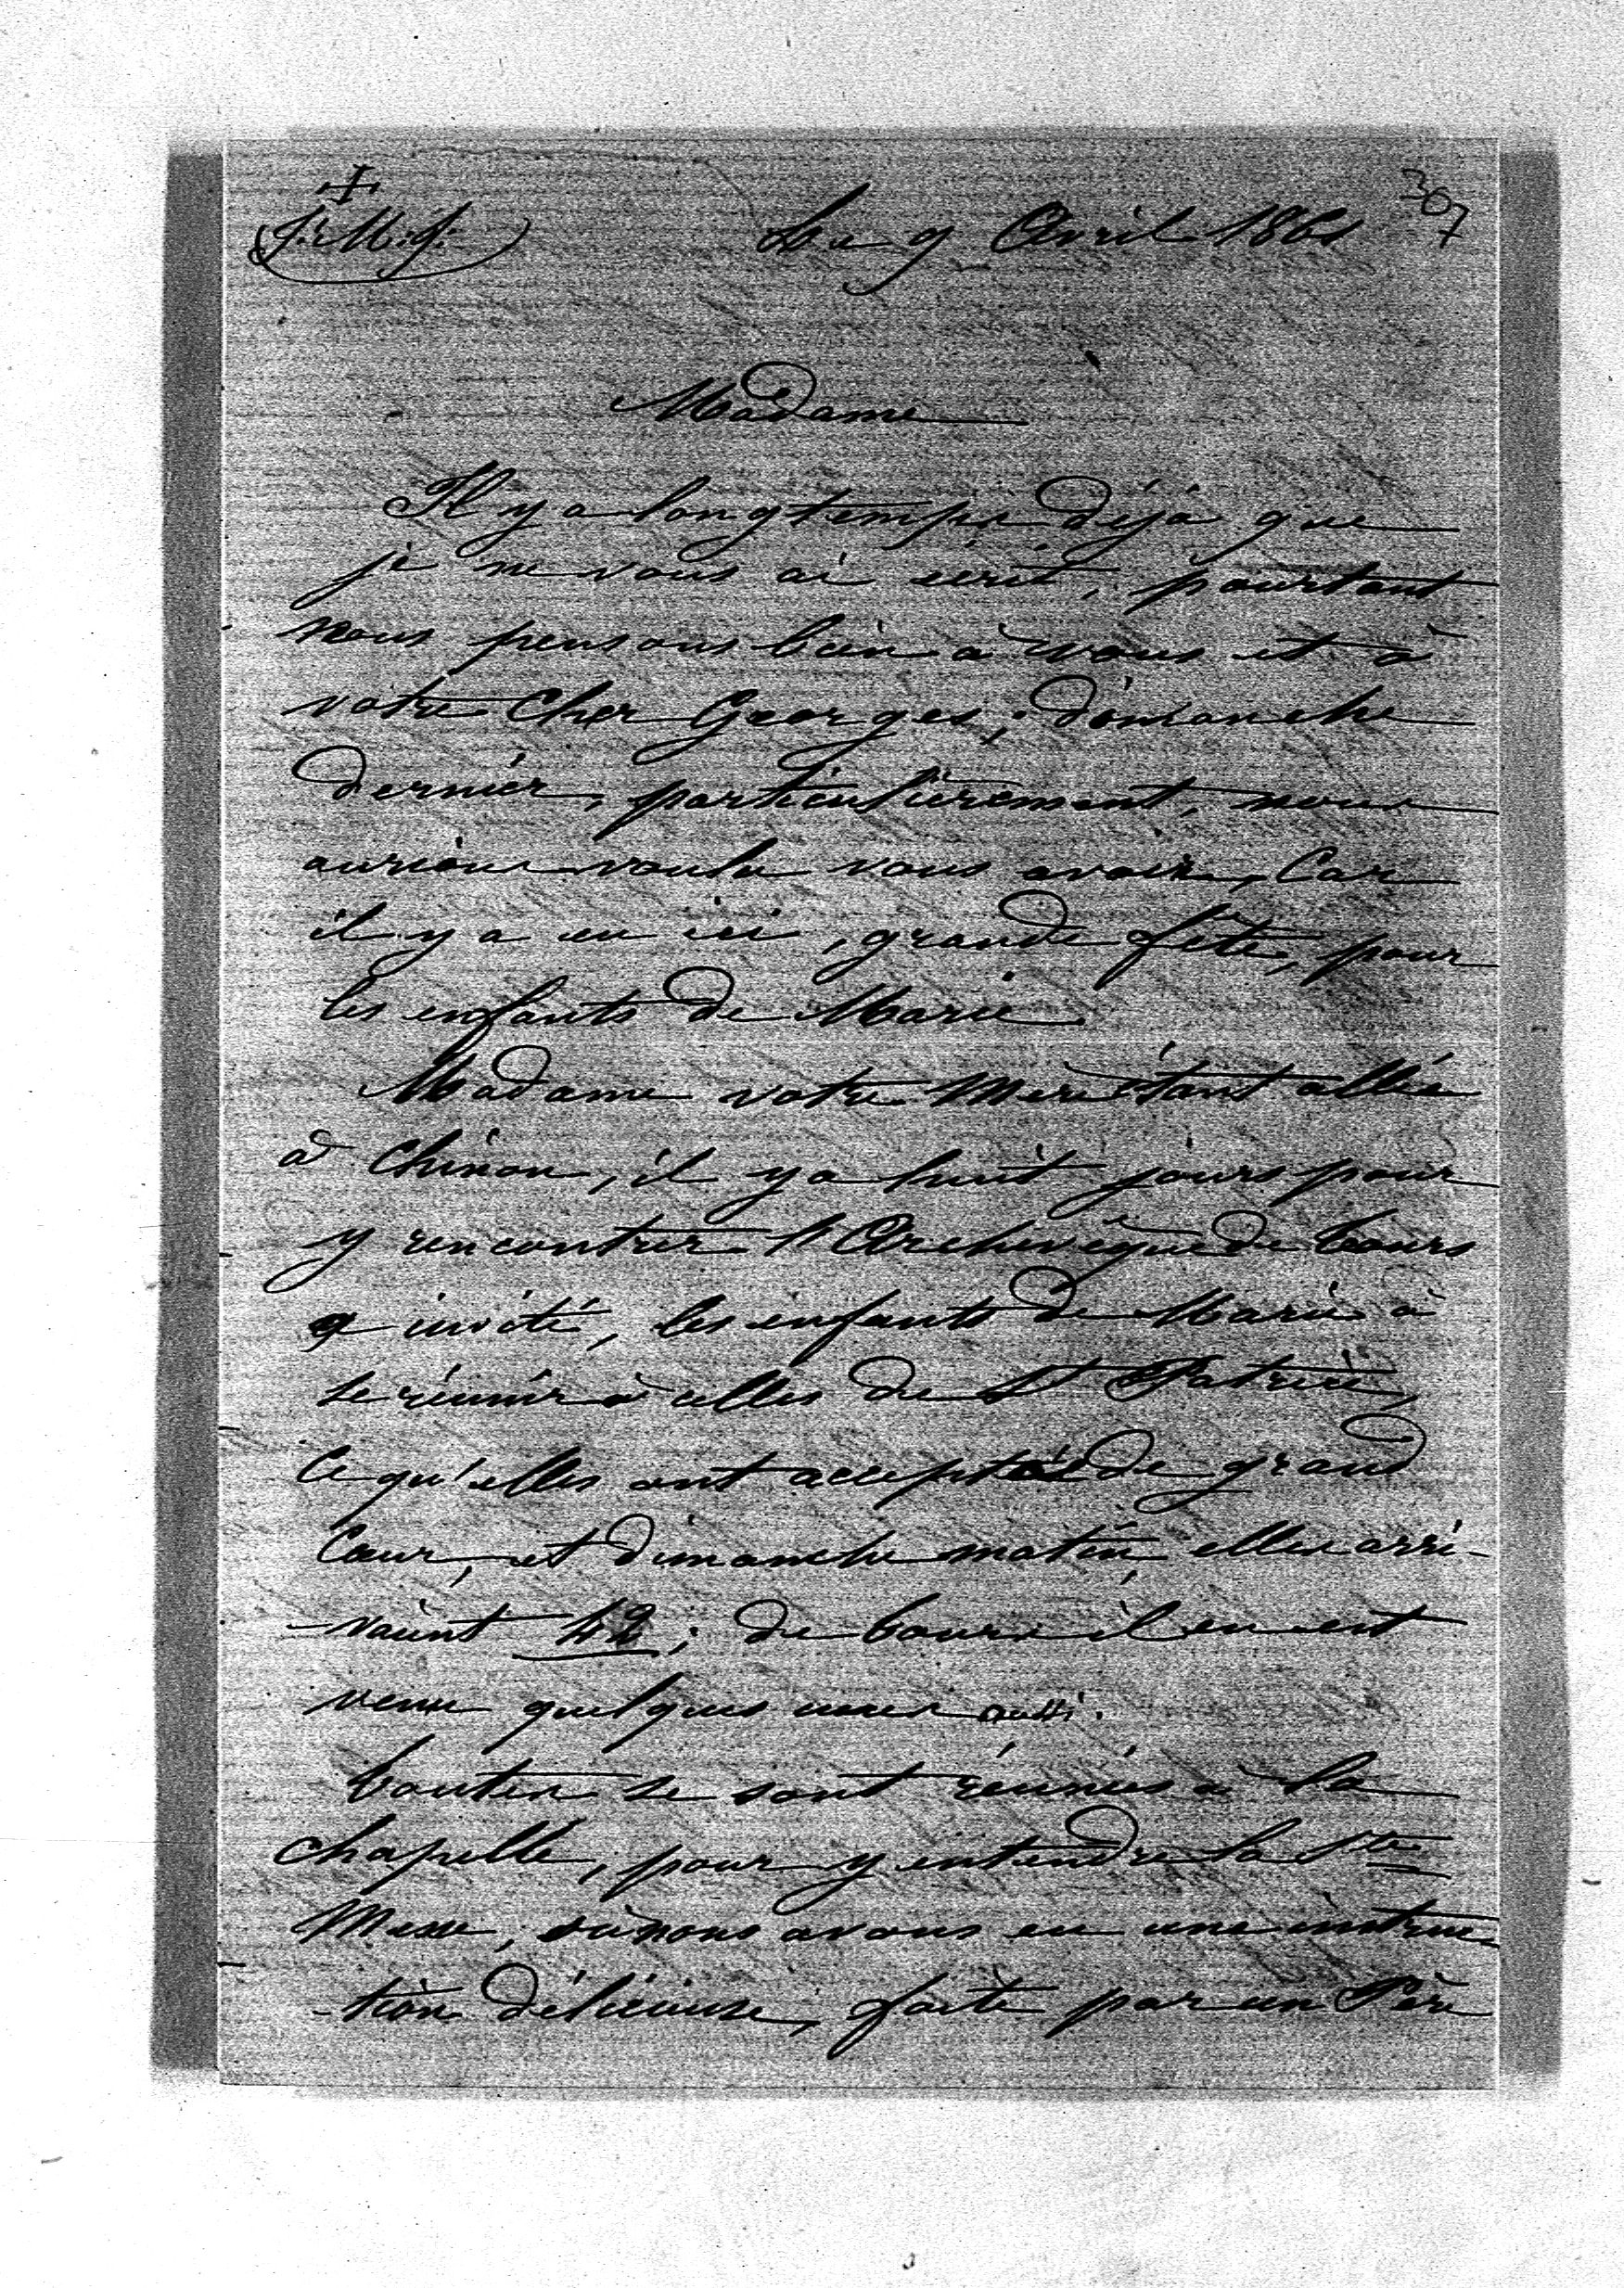 307
J. M. J. Le 9 Avril 1861
Madame
Il y a longtemps déjà que
je ne vous ai écrit, pourtant
nous pensons bien à vous et à
votre Cher Georges; dimanche
dernier, particulièrement, nous
aurions voulu vous avoir, Car
il y a eu ici, grande fête, pour
les enfants de Marie.
Madame votre Mère étant allée
à Chinon, il y a huit jours pour
y rencontrer l'Archevêque de Tours
a invité, les enfants de Marie à
se réunir à celles de St Patrice,
Ce qu'elles ont accepté de grand
Cœur, et dimanche matin, elles arri-
-vaient 42; de Tours il en est
venu quelques unes aussi.
Toutes se sont réunies à la
chapelle, pour y entendre la Ste
Messe, où nous avons eu une instruc-
-tion délicieuse, faite par un Père